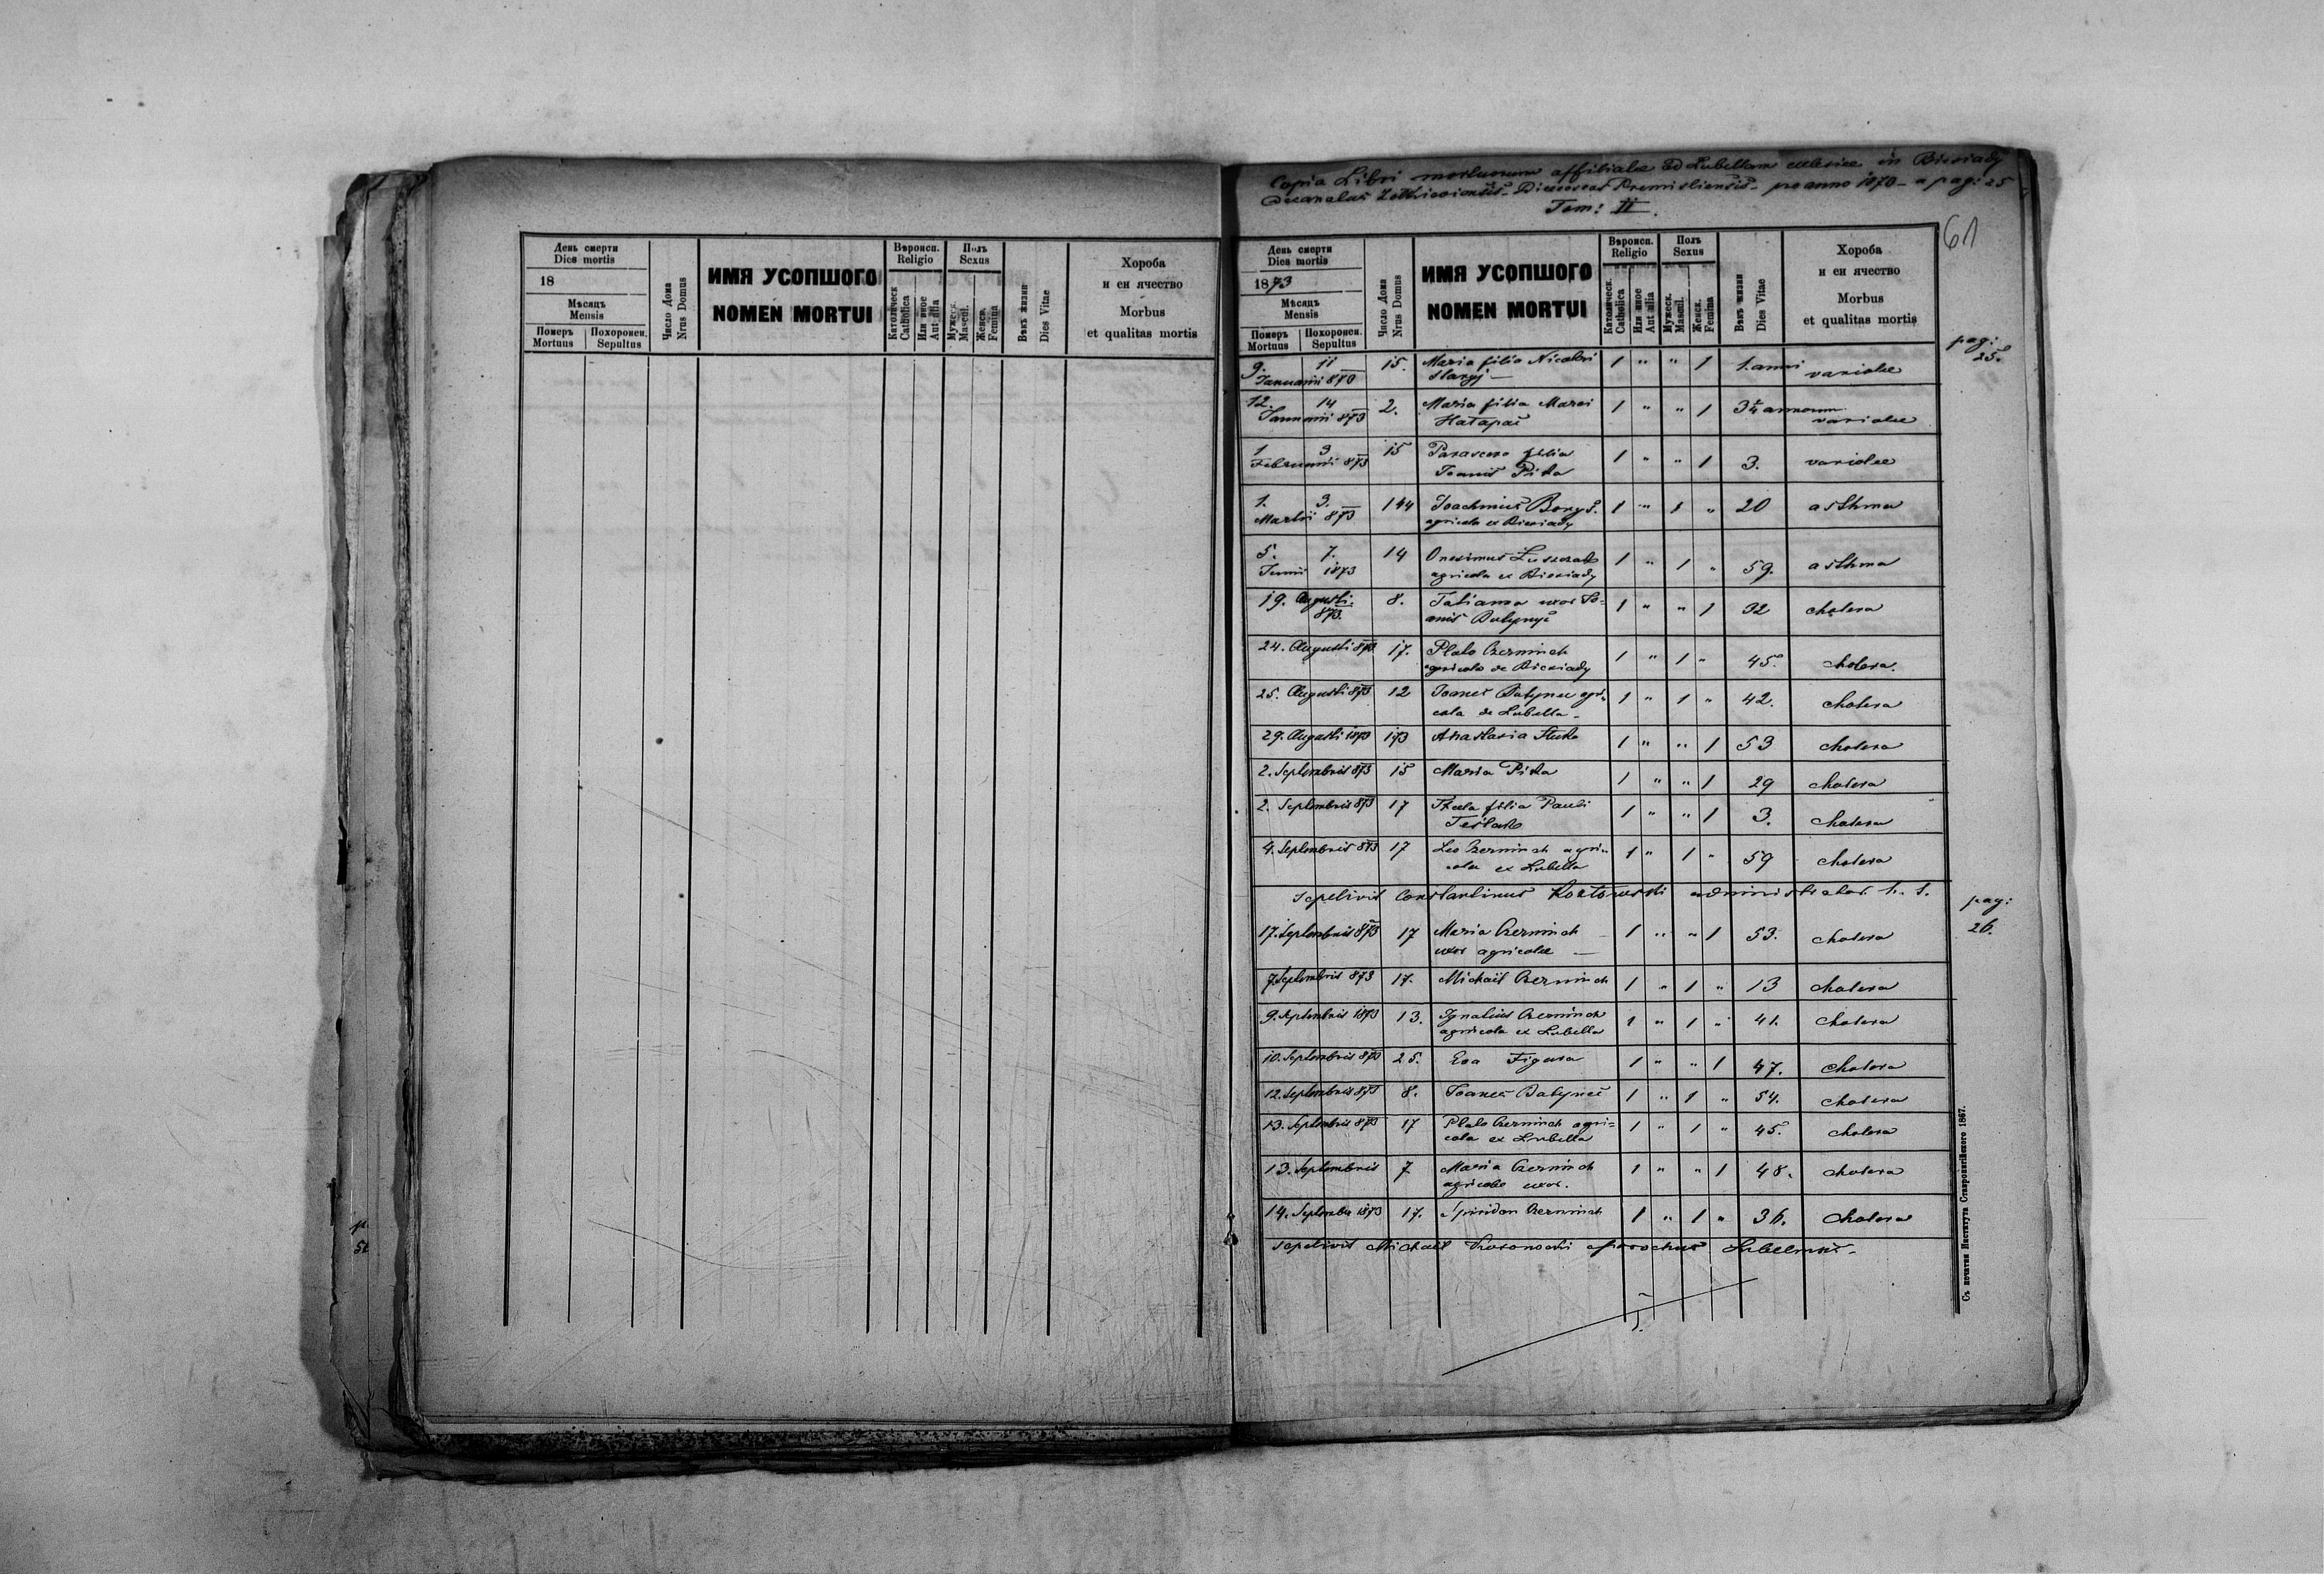 День смерти
Dies mortis
18
Мѣсяцъ
Mensis
Померъ
Mortuus
Похоронен.
Sepultus
Число Дома
Nrus Domus
ИМЯ УСОПШОГО
NOMEN MORTUI
Вѣроисп.
Religio
Католическ.
Catholica
Или иное
Aut alia
Полъ
Sexus
Мужеск.
Mascul.
Женск.
Femina
Вѣкъ жизни
Dies Vitae
Хороба
и еи ячество
Morbus
et qualitas mortis
Copia Libri mortuorum affiliatae ad Lubellam ecclesiae in Biesiady
Decanatus Dieceseos Premisliensis pro anno 1873 a pag: 25
Tom: II.
61
День смерти
Dies mortis
1873
Мѣсяцъ
Mensis
Померъ
Mortuus
Похоронен.
Sepultus
Число Дома
Nrus Domus
ИМЯ УСОПШОГО
NOMEN MORTUI
Вѣроисп.
Religio
Католическ.
Catholica
Или иное
Aut alia
Полъ
Sexus
Мужеск.
Mascul.
Женск.
Femina
Вѣкъ жизни
Dies Vitae
Хороба
и еи ячество
Morbus
et qualitas mortis
pag:
25.
9. 11 15. Maria filia Nicolai 1 " " 1 1. anni variolae
Januarii 873
12. 14 2. Maria filia Marci 1 " " 1 3 1/4 annorum
Januarii 873 variolae
1 3 15 Parasceva filia 1 " " 1 3. variolae
Februarii 873 Joannis Pitka
1. 3. 144 Joachimus Borys. 1 " 1 " 20 asthma
Martii 873 agricola ex Biesiady
5. 7. 14 Onesimus 1 " 1 " 59. asthma
Junii 1873 agricola ex Biesiady
19. Augusti 8. Tatianna uxor Jo= 1 " " 1 32 cholera
873. anis
24. Augusti 873 17. Plato Czerminch 1 " 1 " 45. cholera.
agricola de Biesiady
25. Augusti 873 12 Joanes agri= 1 " 1 " 42. cholera
cola de Lubella
29. Augusti 1873 193 Anastasia 1 " " 1 53 cholera
2. Septembris 873 15 Maria Pitka 1 " " 1 29 cholera
2. Septembris 873 17 Tecla filia Pauli 1 " " 1 3. cholera
4. Septembris 873 17 Leo Czerminch agri= 1 " 1 " 59 cholera
cola ex Lubella
Sepelivit Constantinus administrator
pag:
26.
17. Septembris 873 17 Maria Czerminch 1 " " 1 53. cholera
uxor agricolae
7. Septembris 873 17. Michail Czerminch 1 " 1 " 13 cholera
9. Septembris 1873 13. Ignatius Czerminch 1 " 1 " 41. cholera
agricola ex Lubella
10. Septembris 873 25. Eva Figura 1 " " 1 47. cholera
12. Septembris 873 8. Joanes 1 " 1 " 54. cholera
13. Septembris 873 17 Plato Czerminch agri= 1 " 1 " 45. cholera
cola ex Lubella
13. Septembris 7 Maria Czerminch 1 " " 1 48. cholera
agricolae uxor.
14. Septembr 1873 17. Spiridon Czerminch 1 " 1 " 36. cholera
sepelivit Michael parochus
Съ печатни Института Ставропигійского 1867.
p.